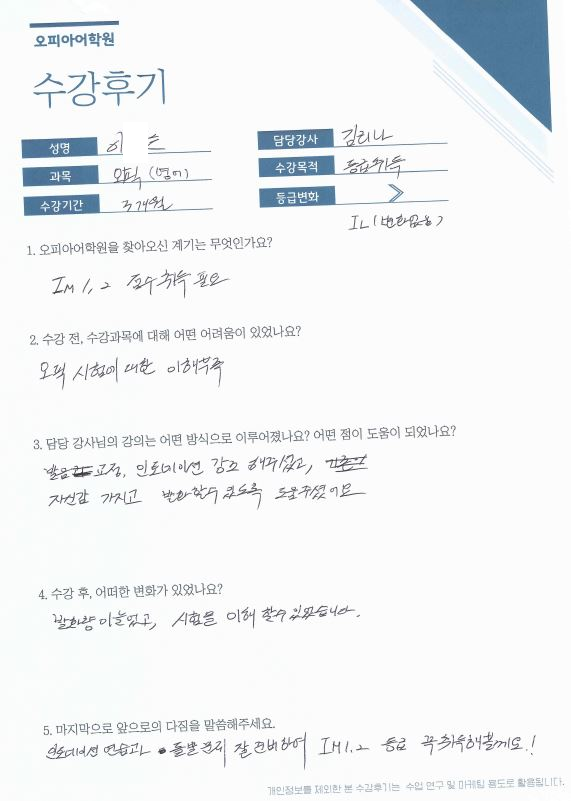 오피아어학원
수강후기
성명 이 츤
담당강사 김리나
과목 오픽 (영어)
수강목적 등급취득
수강기간 3개월
등급변화
IL (변화없음)
1. 오피아어학원을 찾아오신 계기는 무엇인가요?
IM 1, 2 점수 취득 필요
2. 수강 전, 수강과목에 대해 어떤 어려움이 있었나요?
오픽 시험에 대한 이해부족
3. 담당 강사님의 강의는 어떤 방식으로 이루어졌나요? 어떤 점이 도움이 되었나요?
발음 교정, 인토네이션 강조 해주셨고,
자신감 가지고 발화할수 있도록 도와주셨어요
4. 수강 후, 어떠한 변화가 있었나요?
발화량이 늘었고, 시험을 이해 할수 있었습니다.
5. 마지막으로 앞으로의 다짐을 말씀해주세요.
인토네이션 연습과 돌발문제 잘 준비하여 IM1.2 등급 꼭 취득해볼께요!
개인정보를 제외한 본 수강후기는 수업 연구 및 마케팅 용도로 활용됩니다.